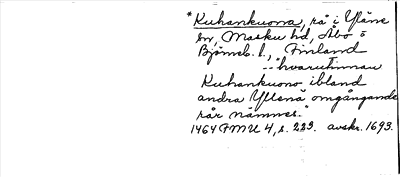 *Kuhankuona, rå i Yläne
sn, Masku hd, Åbo o
Björneb. l., Finland
--- "hvarutinnan
Kuhankuono ibland
andra Yllenä omgångande
rår nämnes."
1464 FMU 4, s. 223. avskr. 1693.